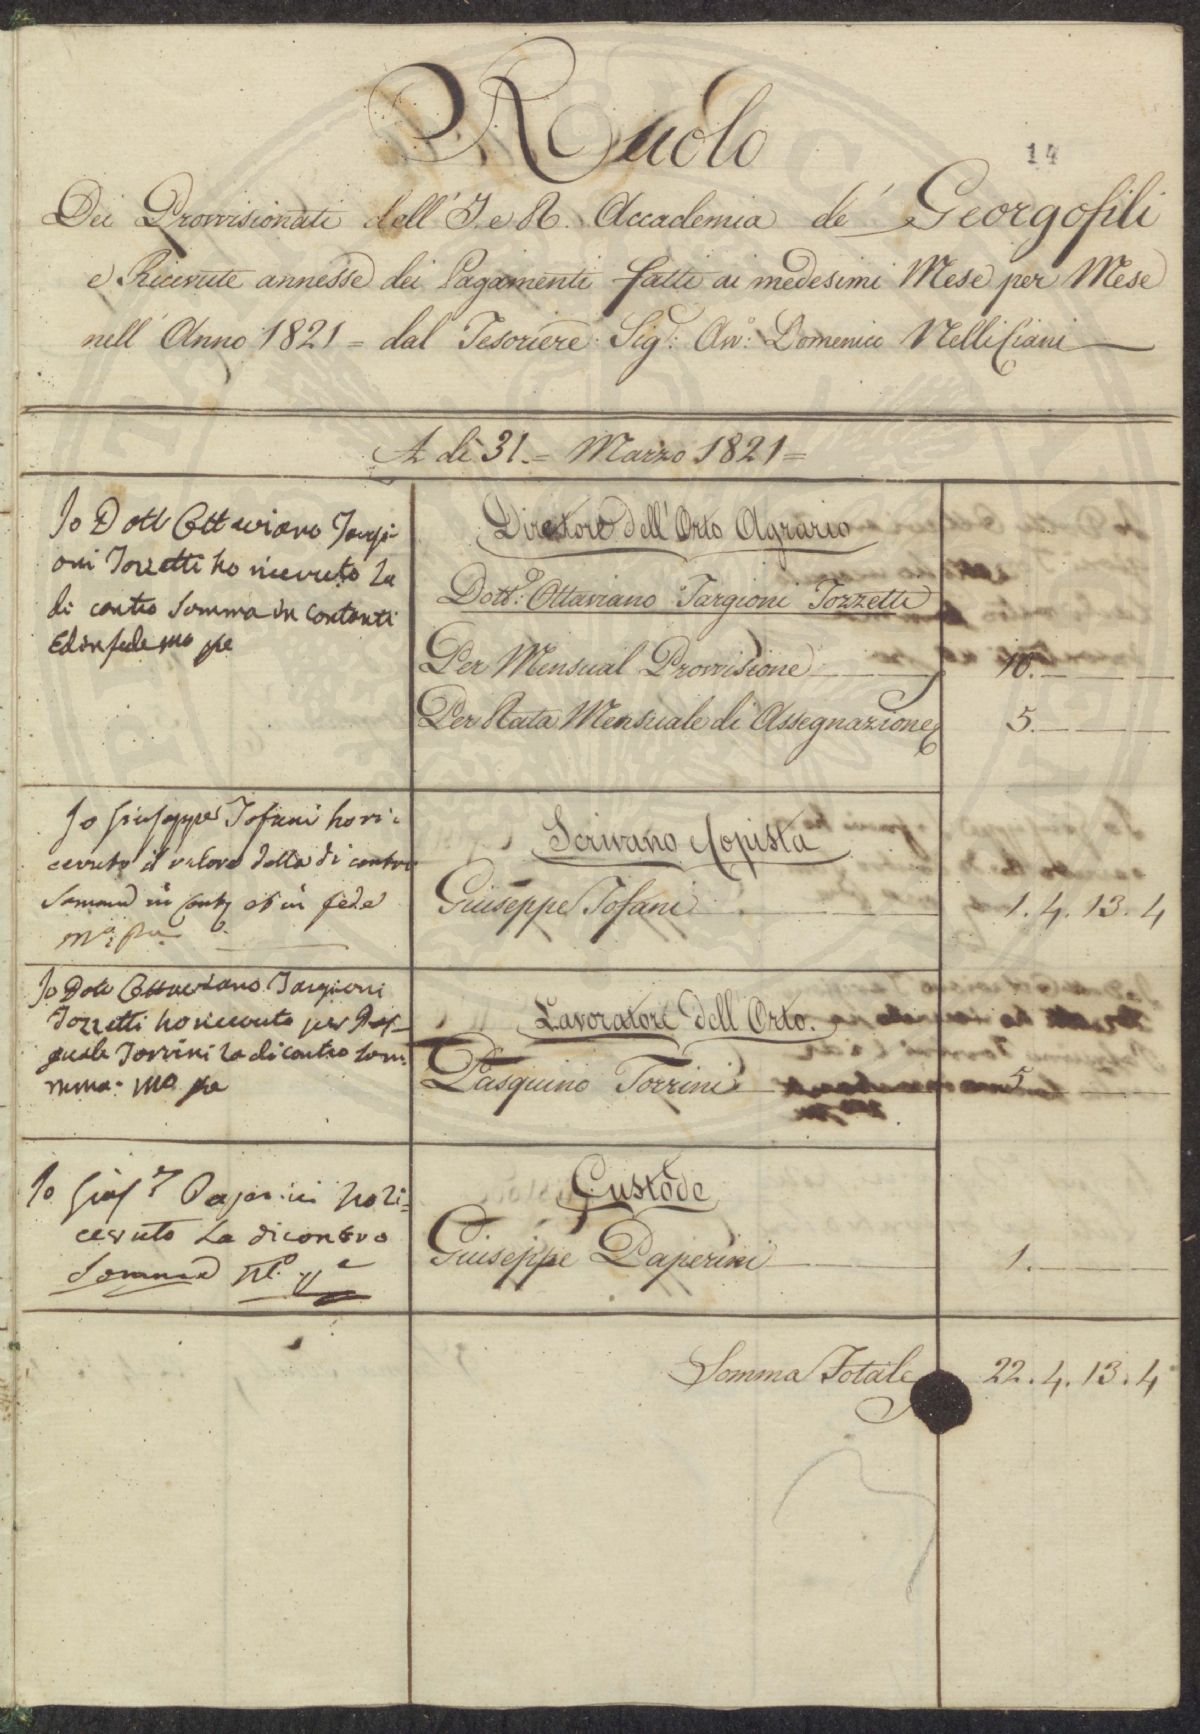 Ruolo
14
Dei Provvisionati dell' I. e R. Accademia de' Georgofili
e Ricevute annesse dei Pagamenti fatti ai medesimi Mese per Mese
nell' Anno 1821 = dal Tesoriere: Sig.r: Avv.o: Domenico Nelli Ciani
A dì 31. = Marzo 1821 =
Io Dott Ottaviano Targi-
oni Tozzetti ho ricevuto la
di contro Somma in contanti
Ed in fede mo pe
Direttore dell' Orto Agrario
Dott.e Ottaviano Targioni Tozzetti
Per Mensual Provvisione 10. —
Per Rata Mensuale di Assegnazione 5. —
Io Giuseppe Tofani ho ri-
cevuto il valore della di contro
Somma in Conti ed in fede
Mo: pa
Scrivano Copista
Giuseppe Tofani 1. 4. 13. 4
Io Dott Ottaviano Targioni
Tozzetti ho ricevuto per Pas-
quale Torrini la di contro som-
mma: Mo pe
Lavoratore dell' Orto.
Pasquino Torrini 5 —
Io Gius.e Paperini ho ri=
cevuto La di contro
Somma
Custode
Giuseppe Paperini 1. —
Somma Totale 22. 4. 13. 4